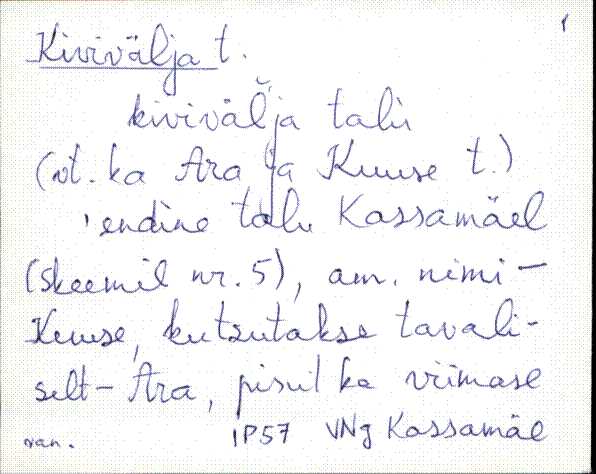 1
Kivivälja t.
kivivälja talu
(vt. ka Ara ja Kuuse t.)
endine talu Kassamäel
(skeemil nr. 5), am. nimi –
Kuuse, kutsutakse tavali-
selt – Ara, pisut ka viimase
van. IP57 VNg Kassamäe